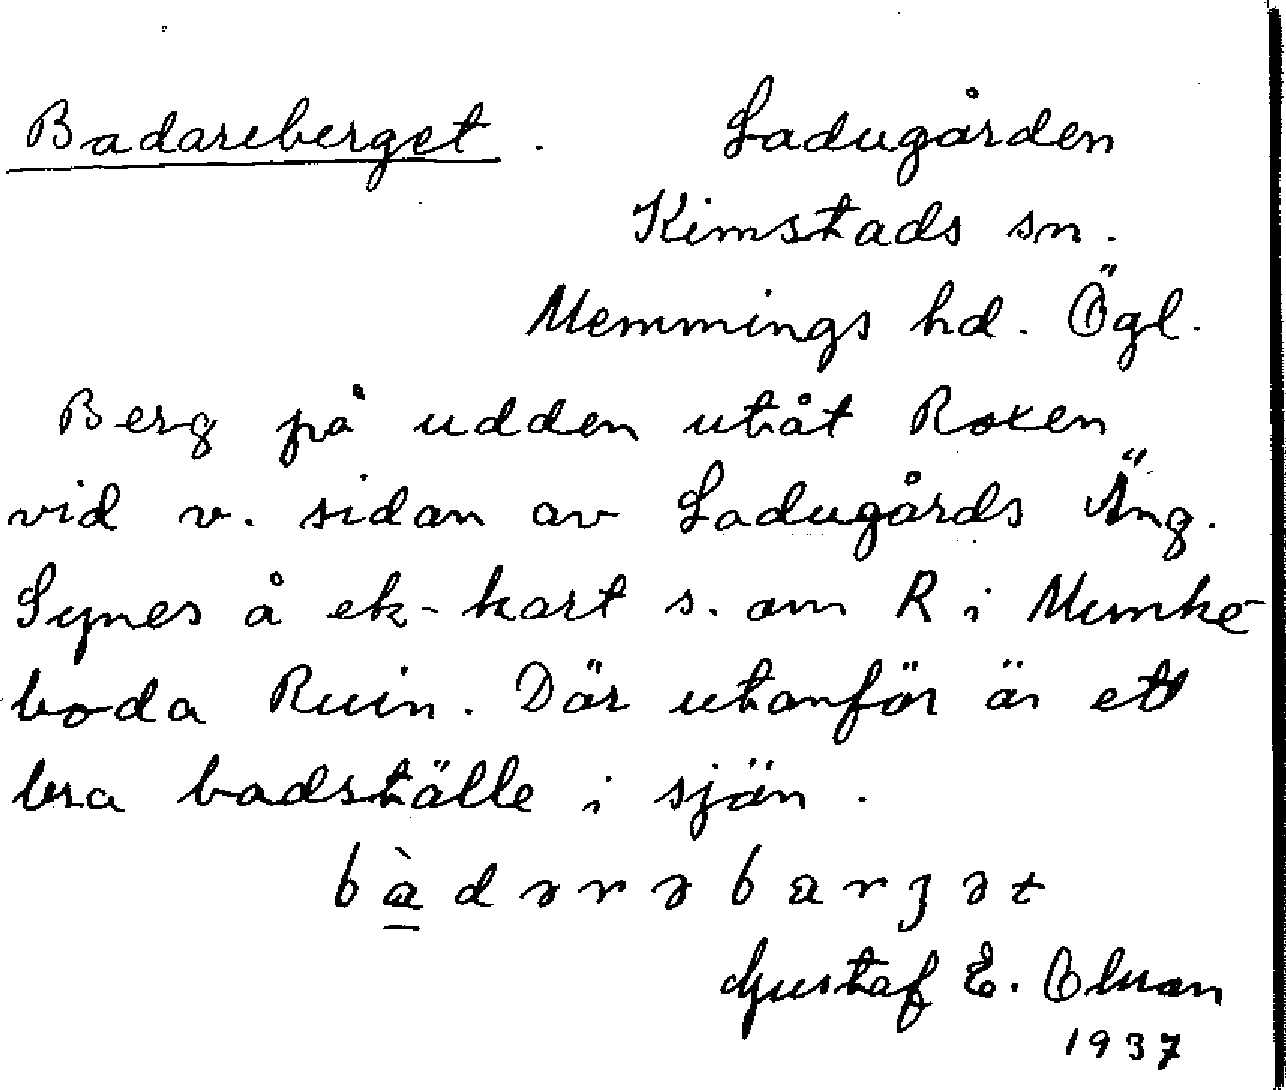 Badareberget. Ladugården
Kimstads sn.
Memmings hd. Ögl.
Berg på udden utåt Roxen
vid v. sidan av Ladugårds Äng.
Synes å ek-kart s. om R i Munke-
boda Ruin. Där utanför är ett
bra badställe i sjön.
bàdərəbarʒət
Gustaf E. Olsson
1937